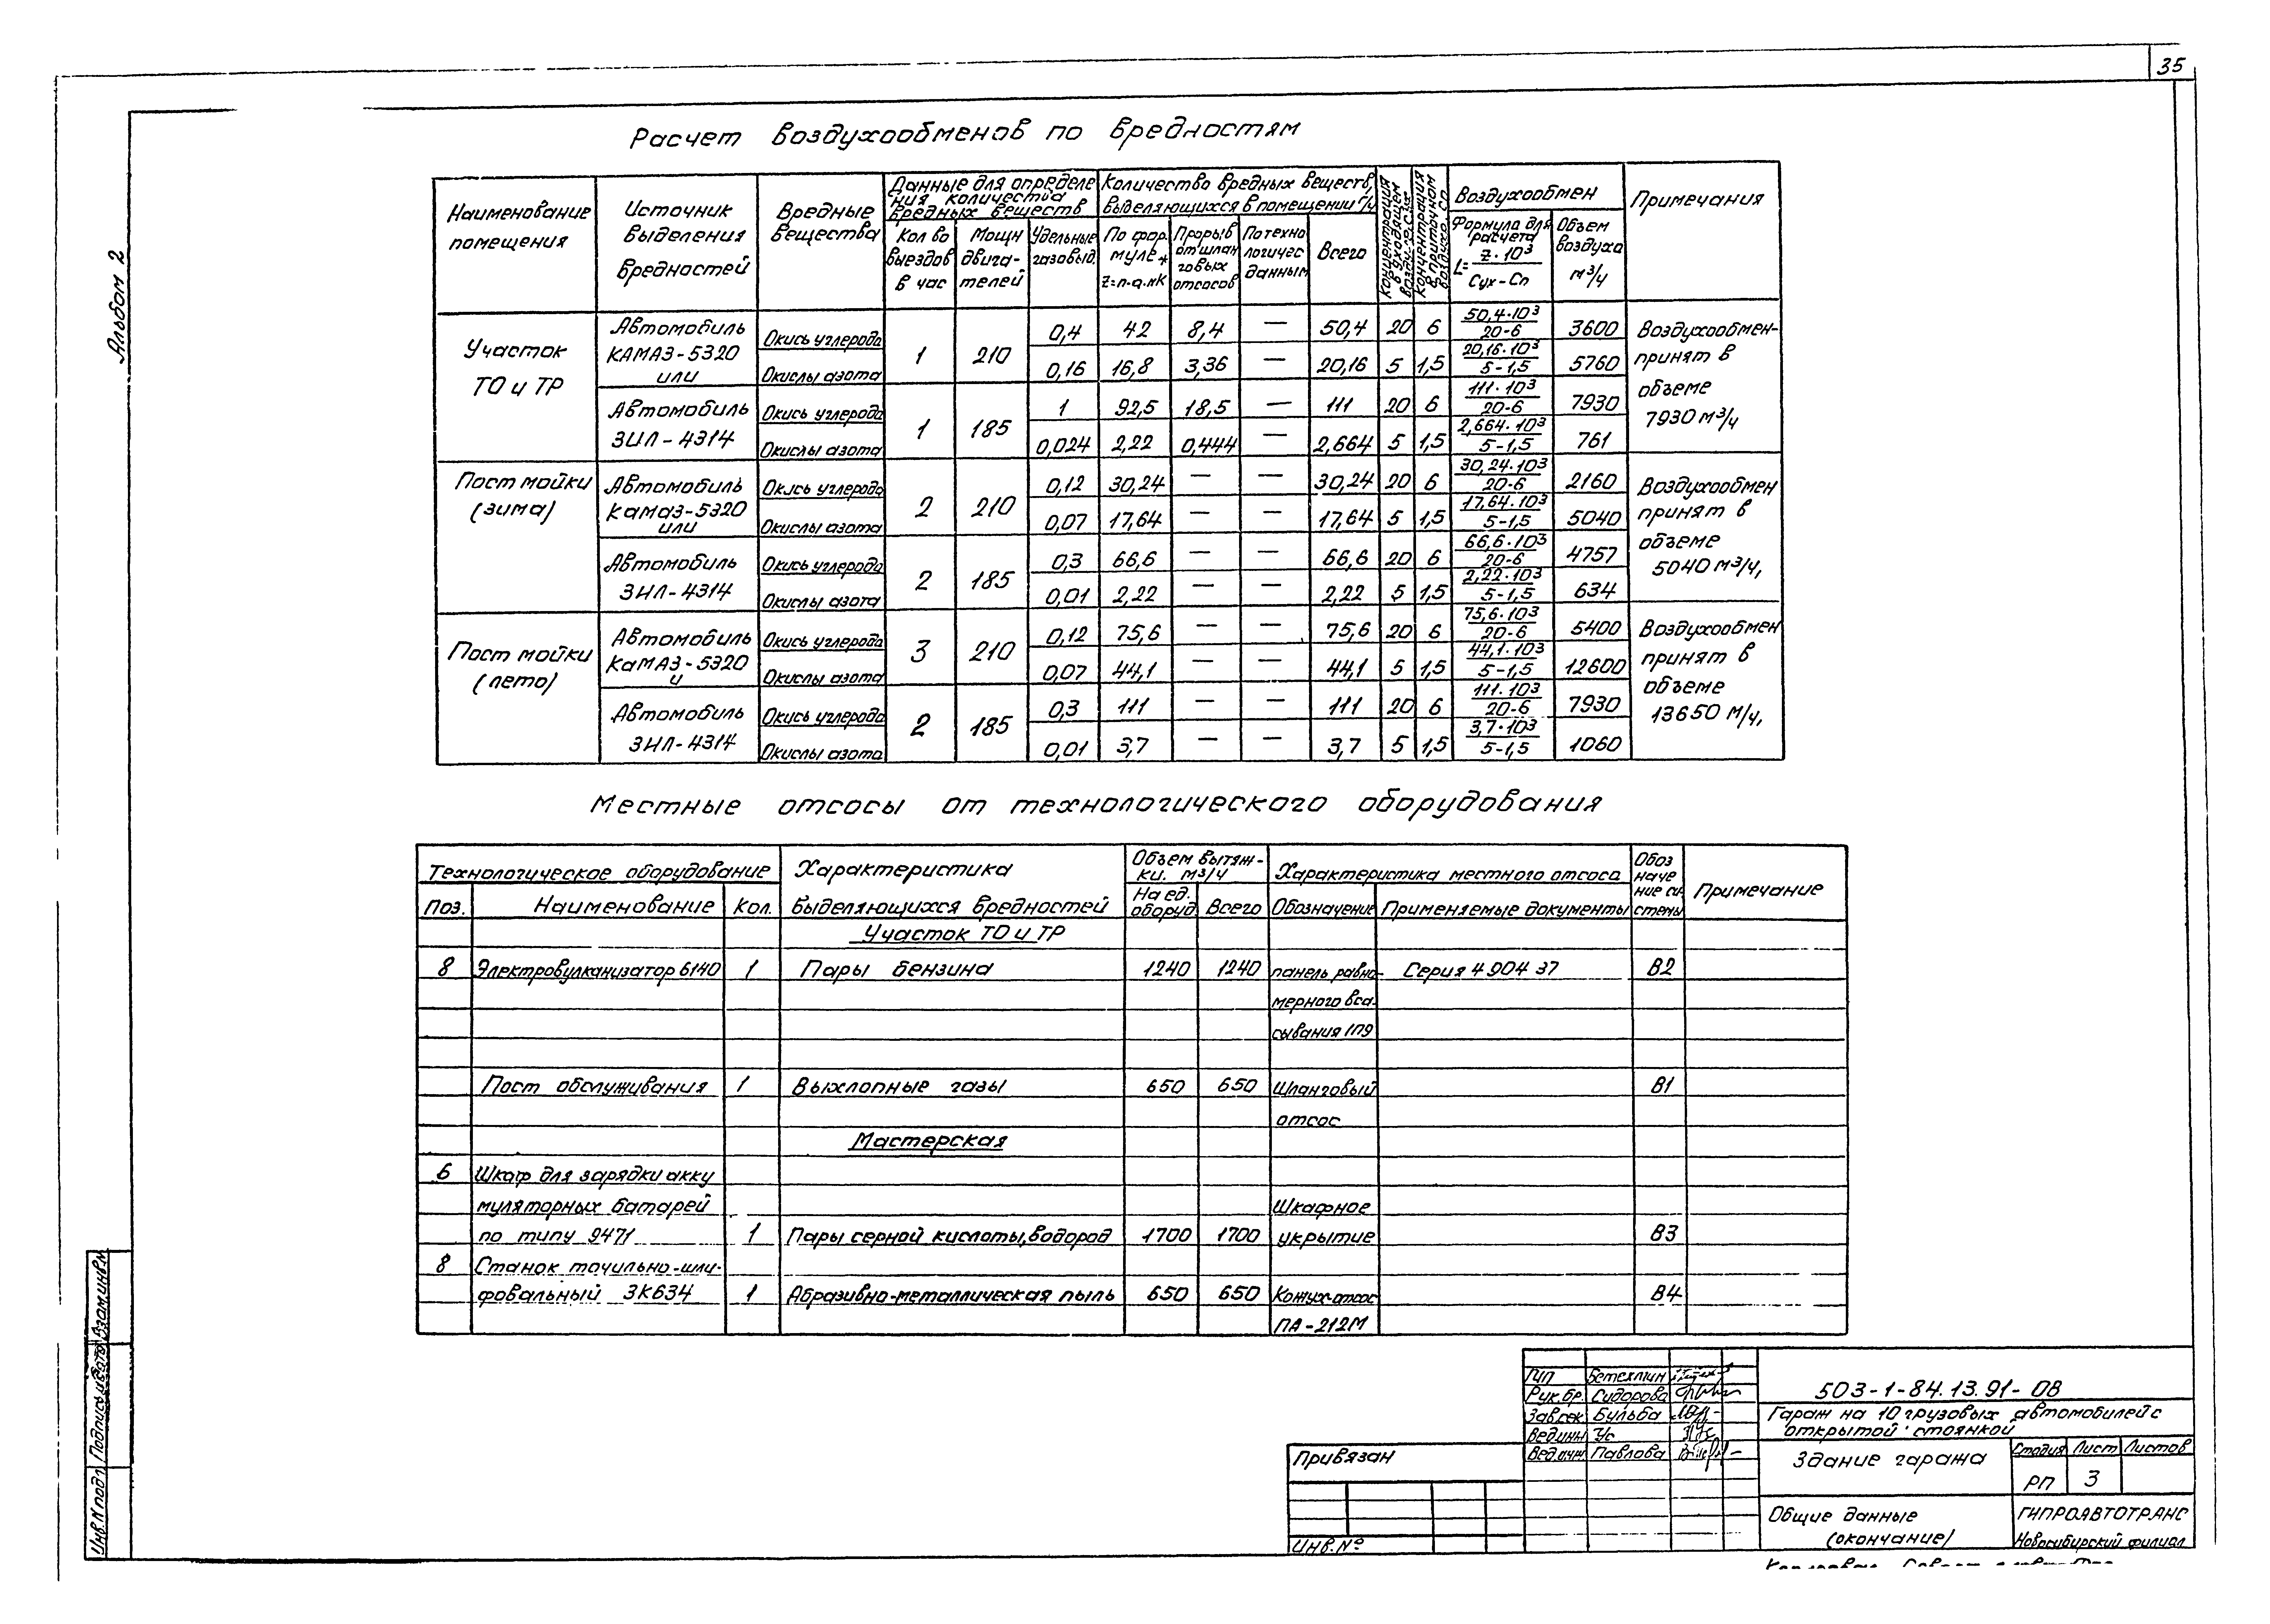 35
Альбом 2
Расчет воздухообменов по вредностям
Наименование помещения | Источник выделения вредностей | Вредные вещества | Данные для определения количества вредных веществ | Количество вредных веществ, выделяющихся в помещении г/ч | Концентрация в уходящем воздухе Сух | Концентрация в приточном воздухе Сп | Воздухообмен | Примечания
Кол во выездов в час | Мощн двигателей | Удельные газовыд. | По формуле * Z=п·q·пК | Прорыв от шланговых отсосов | По технологичес данным | Всего | Формула для расчета L= Z·10³ / Сух-Сп | Объем воздуха м³/ч
Участок ТО и ТР | Автомобиль КАМАЗ-5320 или | Окись углерода | 1 | 210 | 0,4 | 42 | 8,4 | — | 50,4 | 20 | 6 | 50,4·10³ / 20-6 | 3600 | Воздухообмен- принят в объеме 7930 м³/ч
Окислы азота | 0,16 | 16,8 | 3,36 | — | 20,16 | 5 | 1,5 | 20,16·10³ / 5-1,5 | 5760
Автомобиль ЗИЛ-4314 | Окись углерода | 1 | 185 | 1 | 92,5 | 18,5 | — | 111 | 20 | 6 | 111·10³ / 20-6 | 7930
Окислы азота | 0,024 | 2,22 | 0,444 | — | 2,664 | 5 | 1,5 | 2,664·10³ / 5-1,5 | 761
Пост мойки (зима) | Автомобиль Камаз-5320 или | Окись углерода | 2 | 210 | 0,12 | 30,24 | — | — | 30,24 | 20 | 6 | 30,24·10³ / 20-6 | 2160 | Воздухообмен принят в объеме 5040 м³/ч,
Окислы азота | 0,07 | 17,64 | — | — | 17,64 | 5 | 1,5 | 17,64·10³ / 5-1,5 | 5040
Автомобиль ЗИЛ-4314 | Окись углерода | 2 | 185 | 0,3 | 66,6 | — | — | 66,6 | 20 | 6 | 66,6·10³ / 20-6 | 4757
Окислы азота | 0,01 | 2,22 | — | — | 2,22 | 5 | 1,5 | 2,22·10³ / 5-1,5 | 634
Пост мойки (лето) | Автомобиль КаМАЗ-5320 и | Окись углерода | 3 | 210 | 0,12 | 75,6 | — | — | 75,6 | 20 | 6 | 75,6·10³ / 20-6 | 5400 | Воздухообмен принят в объеме 13650 м/ч,
Окислы азота | 0,07 | 44,1 | — | — | 44,1 | 5 | 1,5 | 44,1·10³ / 5-1,5 | 12600
Автомобиль ЗИЛ-4314 | Окись углерода | 2 | 185 | 0,3 | 111 | — | — | 111 | 20 | 6 | 111·10³ / 20-6 | 7930
Окислы азота | 0,01 | 3,7 | — | — | 3,7 | 5 | 1,5 | 3,7·10³ / 5-1,5 | 1060
Местные отсосы от технологического оборудования
Технологическое оборудование | Характеристика выделяющихся вредностей | Объем вытяжки. м³/ч | Характеристика местного отсоса | Обозначение системы | Примечание
Поз. | Наименование | Кол. | На ед. оборуд | Всего | Обозначение | Применяемые документы
Участок ТО и ТР
8 | Электровулканизатор 6140 | 1 | Пары бензина | 1240 | 1240 | панель равно- | Серия 4 904 37 | В2
мерного вса-
сывания 1П9
Пост обслуживания | 1 | Выхлопные газы | 650 | 650 | Шланговый | В1
отсос
Мастерская
6 | Шкаф для зарядки акку
муляторных батарей | Шкафное
по типу 9471 | 1 | Пары серной кислоты, водород | 1700 | 1700 | укрытие | В3
8 | Станок точильно-шли-
фовальный 3К634 | 1 | Абразивно-металлическая пыль | 650 | 650 | Кожух-отсос | В4
ПА-212М
ГИП Бетехтин
Рук.бр. Сидорова
Зав.сек Бульба
Вед.инж Ус
Вед.инж Павлова
503-1-84.13.91-ОВ
Гараж на 10 грузовых автомобилей с
открытой стоянкой
Здание гаража
Стадия Лист Листов
РП 3
Общие данные
(окончание)
ГИПРОАВТОТРАНС
Новосибирский филиал
Привязан
Инв.№
Инв.N подл Подпись и дата Взам.инв.N